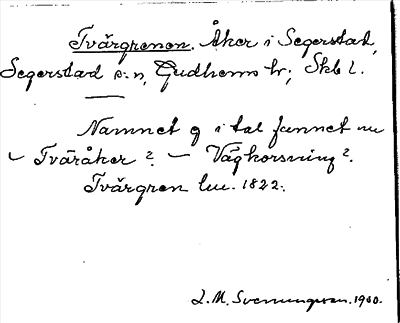 Tvärgrenen. Åker i Segerstad,
Segerstad s:n, Gudhems hr; Skbl.
Namnet ej i tal funnet nu
– Tväråker? – Vägkorsning?
Tvärgren lm. 1822.
L. M. Svenungsson. 1900.